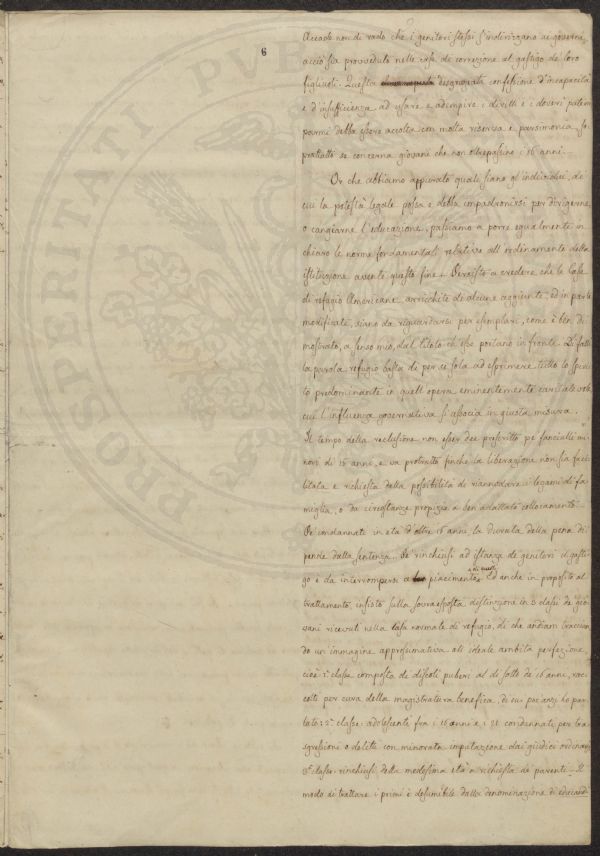 6
Accade non di rado che i genitori stessi s'indirizzano ai governi,
acciò sia provveduto nelle case di correzione al gastigo de' loro
figliuoli. Questa disgraziata confessione d'incapacità
e d'insufficienza ad usare e adempire i diritti e i doveri paterni
parmi debba essere accolta con molta riserva e parsimonia, so
prattutto se concerna giovani che non oltrepassino i 16 anni. —
Or che abbiamo appurato quali siano gl'individui, de'
cui la potestà legale possa e debba impadronirsi per dirigerne,
o cangiarne l'educazione, passiamo a porre egualmente in
chiaro le norme fondamentali relative all'ordinamento della
istituzione avente questo fine. Persisto a credere che le Case
di refugio Americane arricchite di alcune aggiunte, ed in parte
modificate, siano da riguardarsi per esemplari, come è ben di
mostrato, a senso mio, dal titolo ch'esse portano in fronte. Di fatti
la parola refugio basta di per se sola ad esprimere tutto lo spiri
to predominante in quell'opera eminentemente caritatevole
cui l'influenza governativa s'associa in giusta misura.
Il tempo della reclusione non esser dee prescritto pe' fanciulli mi
nori di 16 anni, e va protratto finchè la liberazione non sia faci
litata e richiesta dalla possibilità di riannodare i legami di fa
miglia, o da circostanze propizie a ben adattato collocamento.
Pe' condannati in età d'oltre 16 anni la durata della pena di
pende dalla sentenza. Pe' rinchiusi ad istanza de' genitori il gasti
go è da interrompersi a piacimento di quelli. Ed anche in proposito al
trattamento, insisto sulla sovraesposta distinzione in 3 classi de' gio
vani ricevuti nella casa normale di refugio, di che andiam traccian
do un'immagine approssimativa all'ideale ambita perfezione,
cioè 1ª classe composta de' discoli puberi al di sotto de' 16 anni, rac
colti per cura della magistratura benefica, di cui poc'anzi ho par
lato: 2ª classe: adolescenti fra i 16 anni e i 21 condannati per tra
sgressioni o delitti con minorata imputazione dai giudici ordinarj
3ª classe: rinchiusi della medesima età a richiesta de' parenti. — Il
modo di trattare i primi è desumibile dalla denominazione di educand